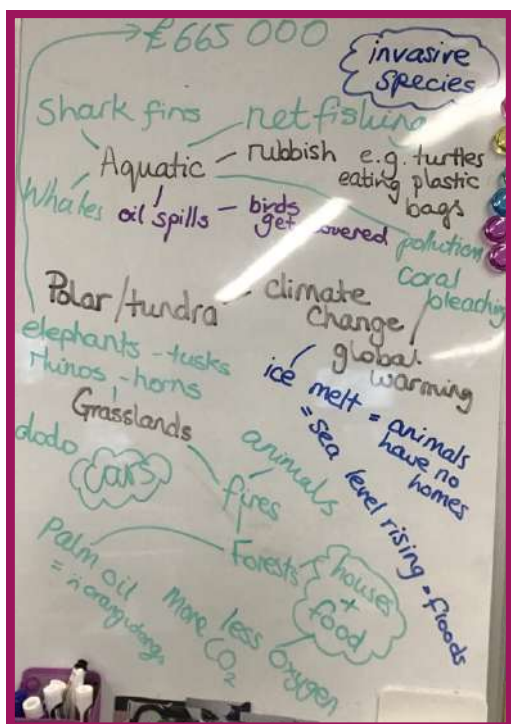 £665 000
invasive
species
Shark fins
net fishing
Aquatic - rubbish e.g. turtles
eating plastic
bags
Whales
oil spills - birds
get covered
pollution
Coral
bleaching
Polar/tundra - climate
change
global
warming
elephants - tusks
rhinos - horns
Grasslands
ice melt = animals
have no
homes
= sea level rising = floods
dodo
cars
animals
fires
Forests
houses
+
food
Palm oil
=
orangutangs
more
CO2
less
oxygen